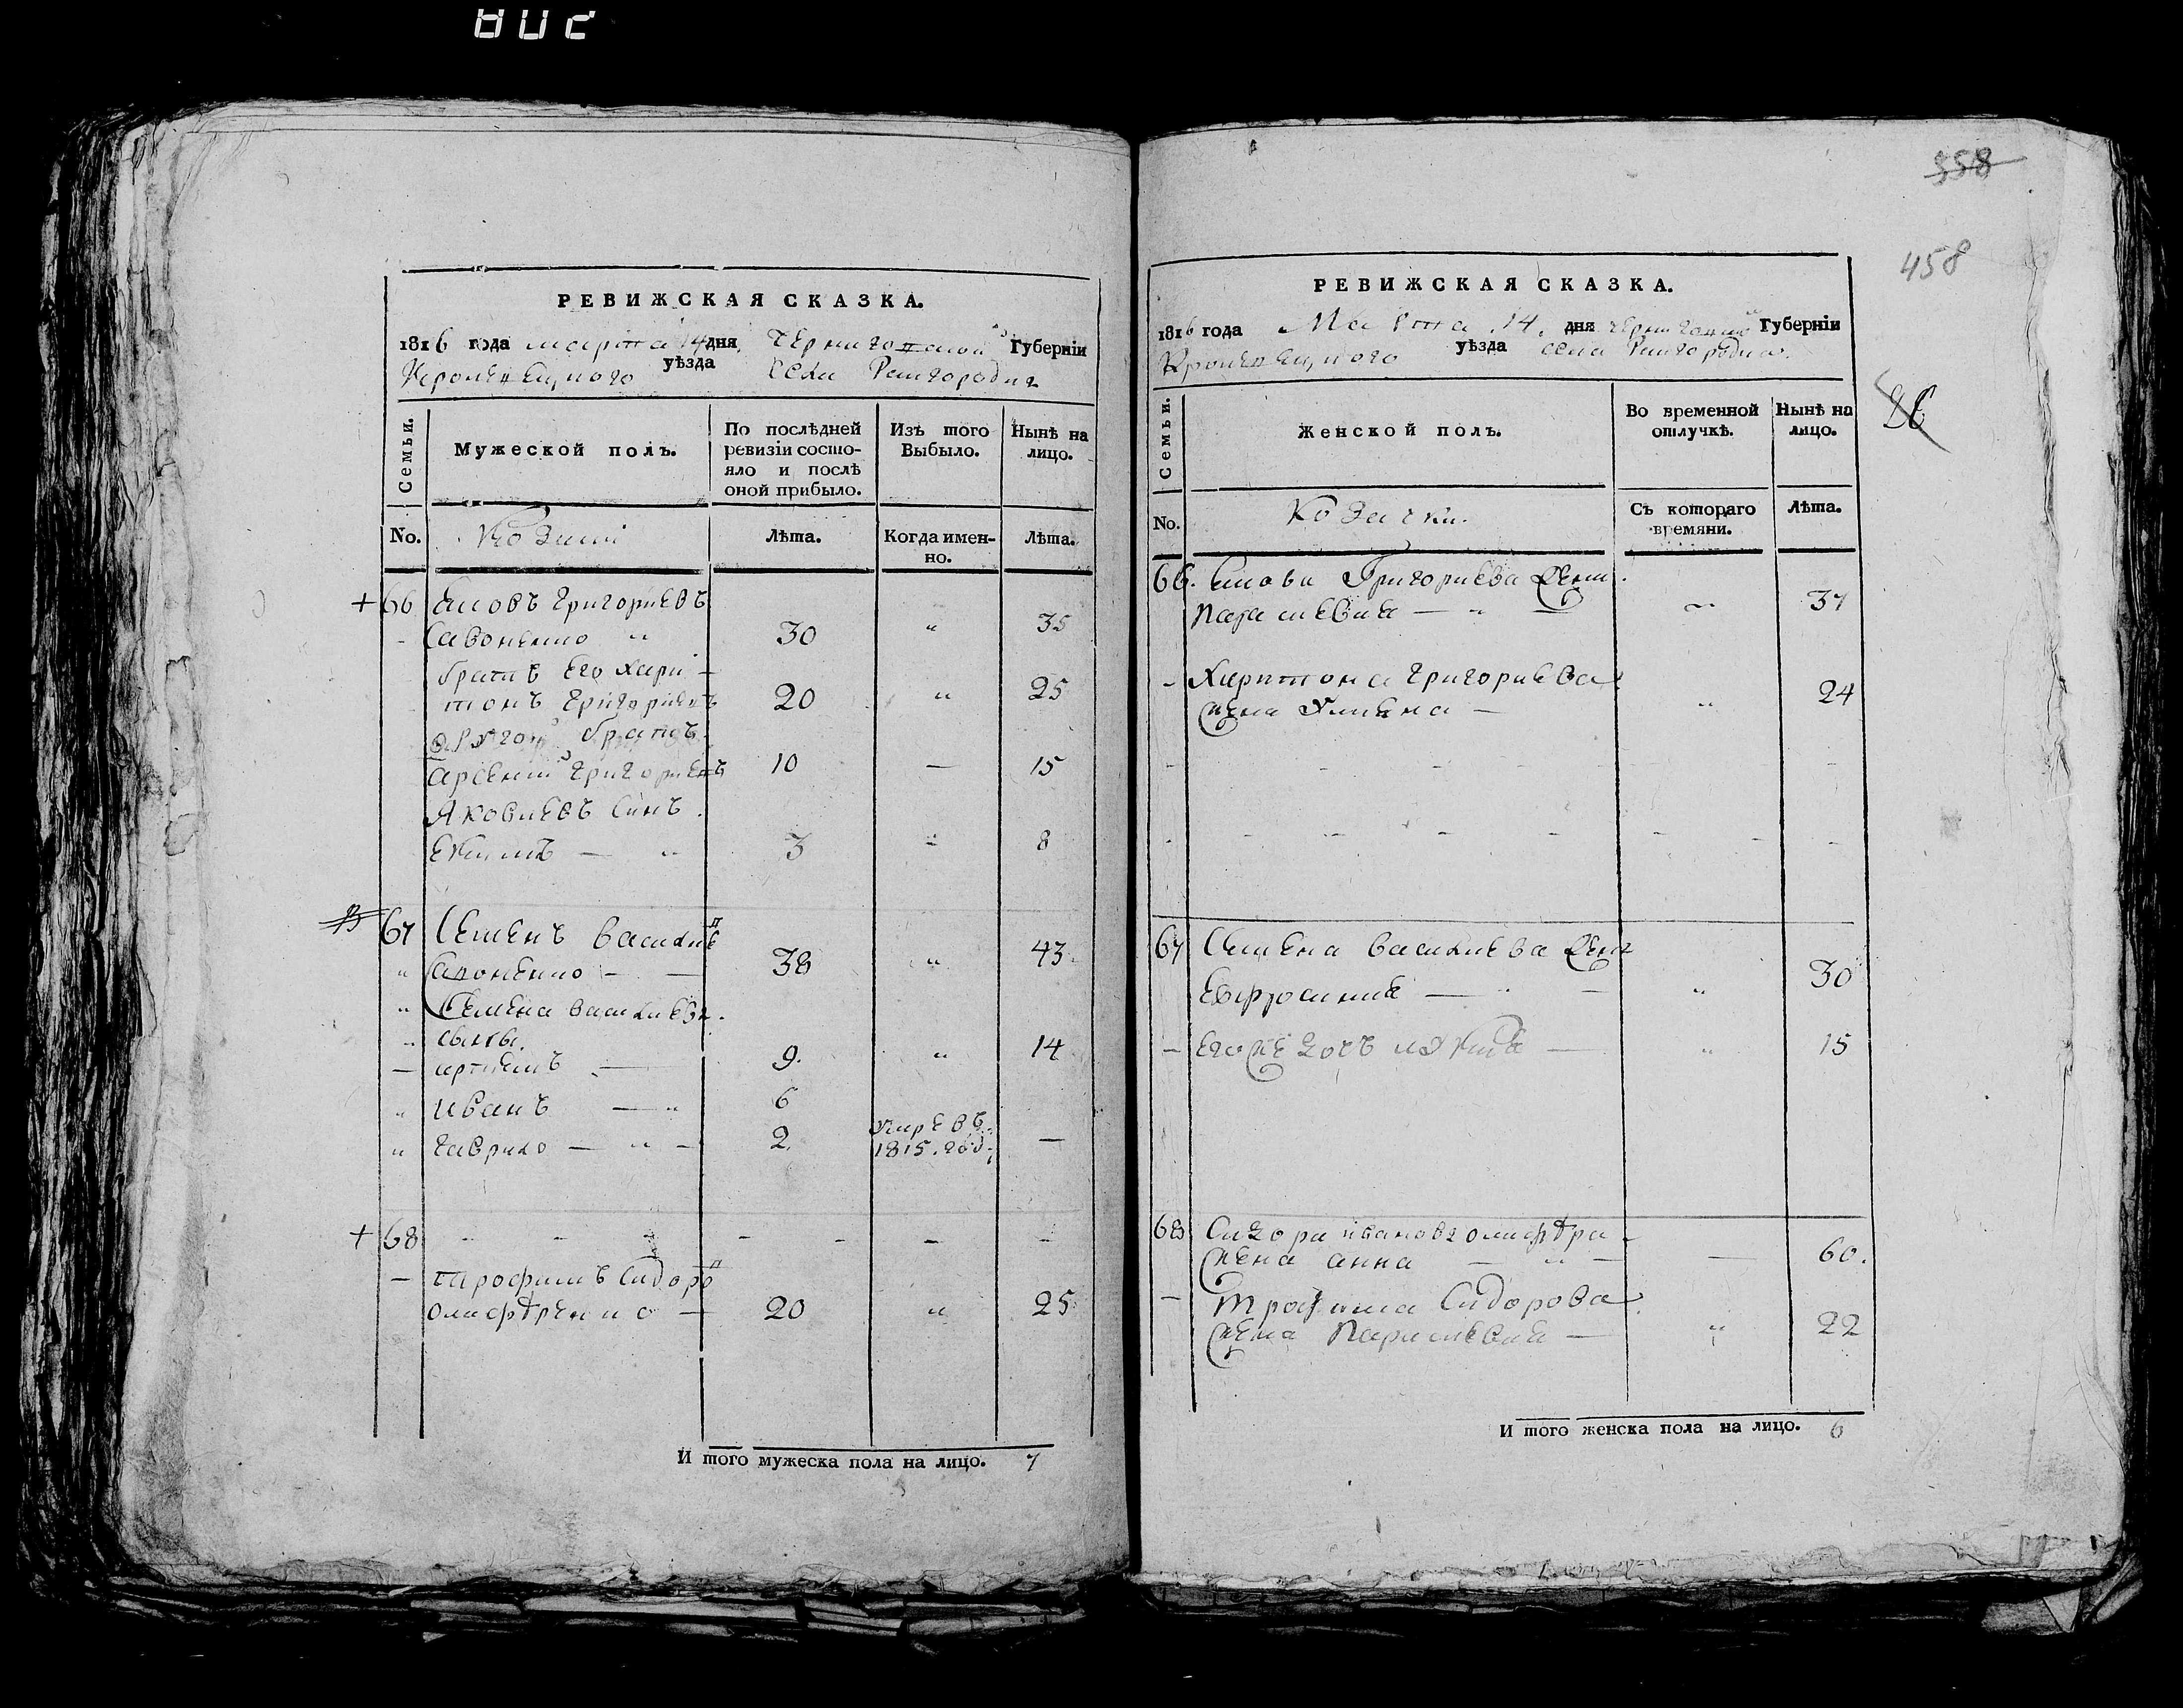 802
РЕВИЖСКАЯ СКАЗКА.
1816 года марта 14 дня Черниговской Губерніи
Кролевецкого уѣзда села Райгородка
Семьи.
Мужеской полъ.
По послѣдней ревизіи состояло и послѣ оной прибыло.
Изъ того Выбыло.
Нынѣ на лицо.
No.
Козаки
Лѣта.
Когда именно.
Лѣта.
+ 66 Яковъ григориевъ
Савоненко 30 35
братъ Его Хари
тонъ григориевъ 20 25
другой братъ
арсений григориевъ 10 — 15
Яковлевъ Синъ
Екимъ — 3 8
67 Семенъ василие в
Савоненко — 38 43
Семена василиева
сыны
артиемъ — 9. 14
иванъ — 6
гаврило — 2. умре въ 1815. год: —
+ 68
— трофимъ Сидоров
олифѣренко — 20 25
И того мужеска пола на лицо. 7
358
458
РЕВИЖСКАЯ СКАЗКА.
1816 года Марта 14. дня черниговской Губерніи
Кролевецкого уѣзда села Райгородка.
Семьи.
Женской полъ.
Во временной отлучкѣ.
Нынѣ на лицо.
No.
Козачки.
Съ котораго времяни.
Лѣта.
66. Якова Григориева жена
Парасковия — 37
— Харитона григориева
жена Улияна — 24
67 Семена василиева жена
Евфросиния — 30
— Егожъ дочъ — 15
68 Сидора иванова олифѣра
жена анна — 60.
— Трофима Сидорова
жена Парасковия — 22
И того женска пола на лицо. 6